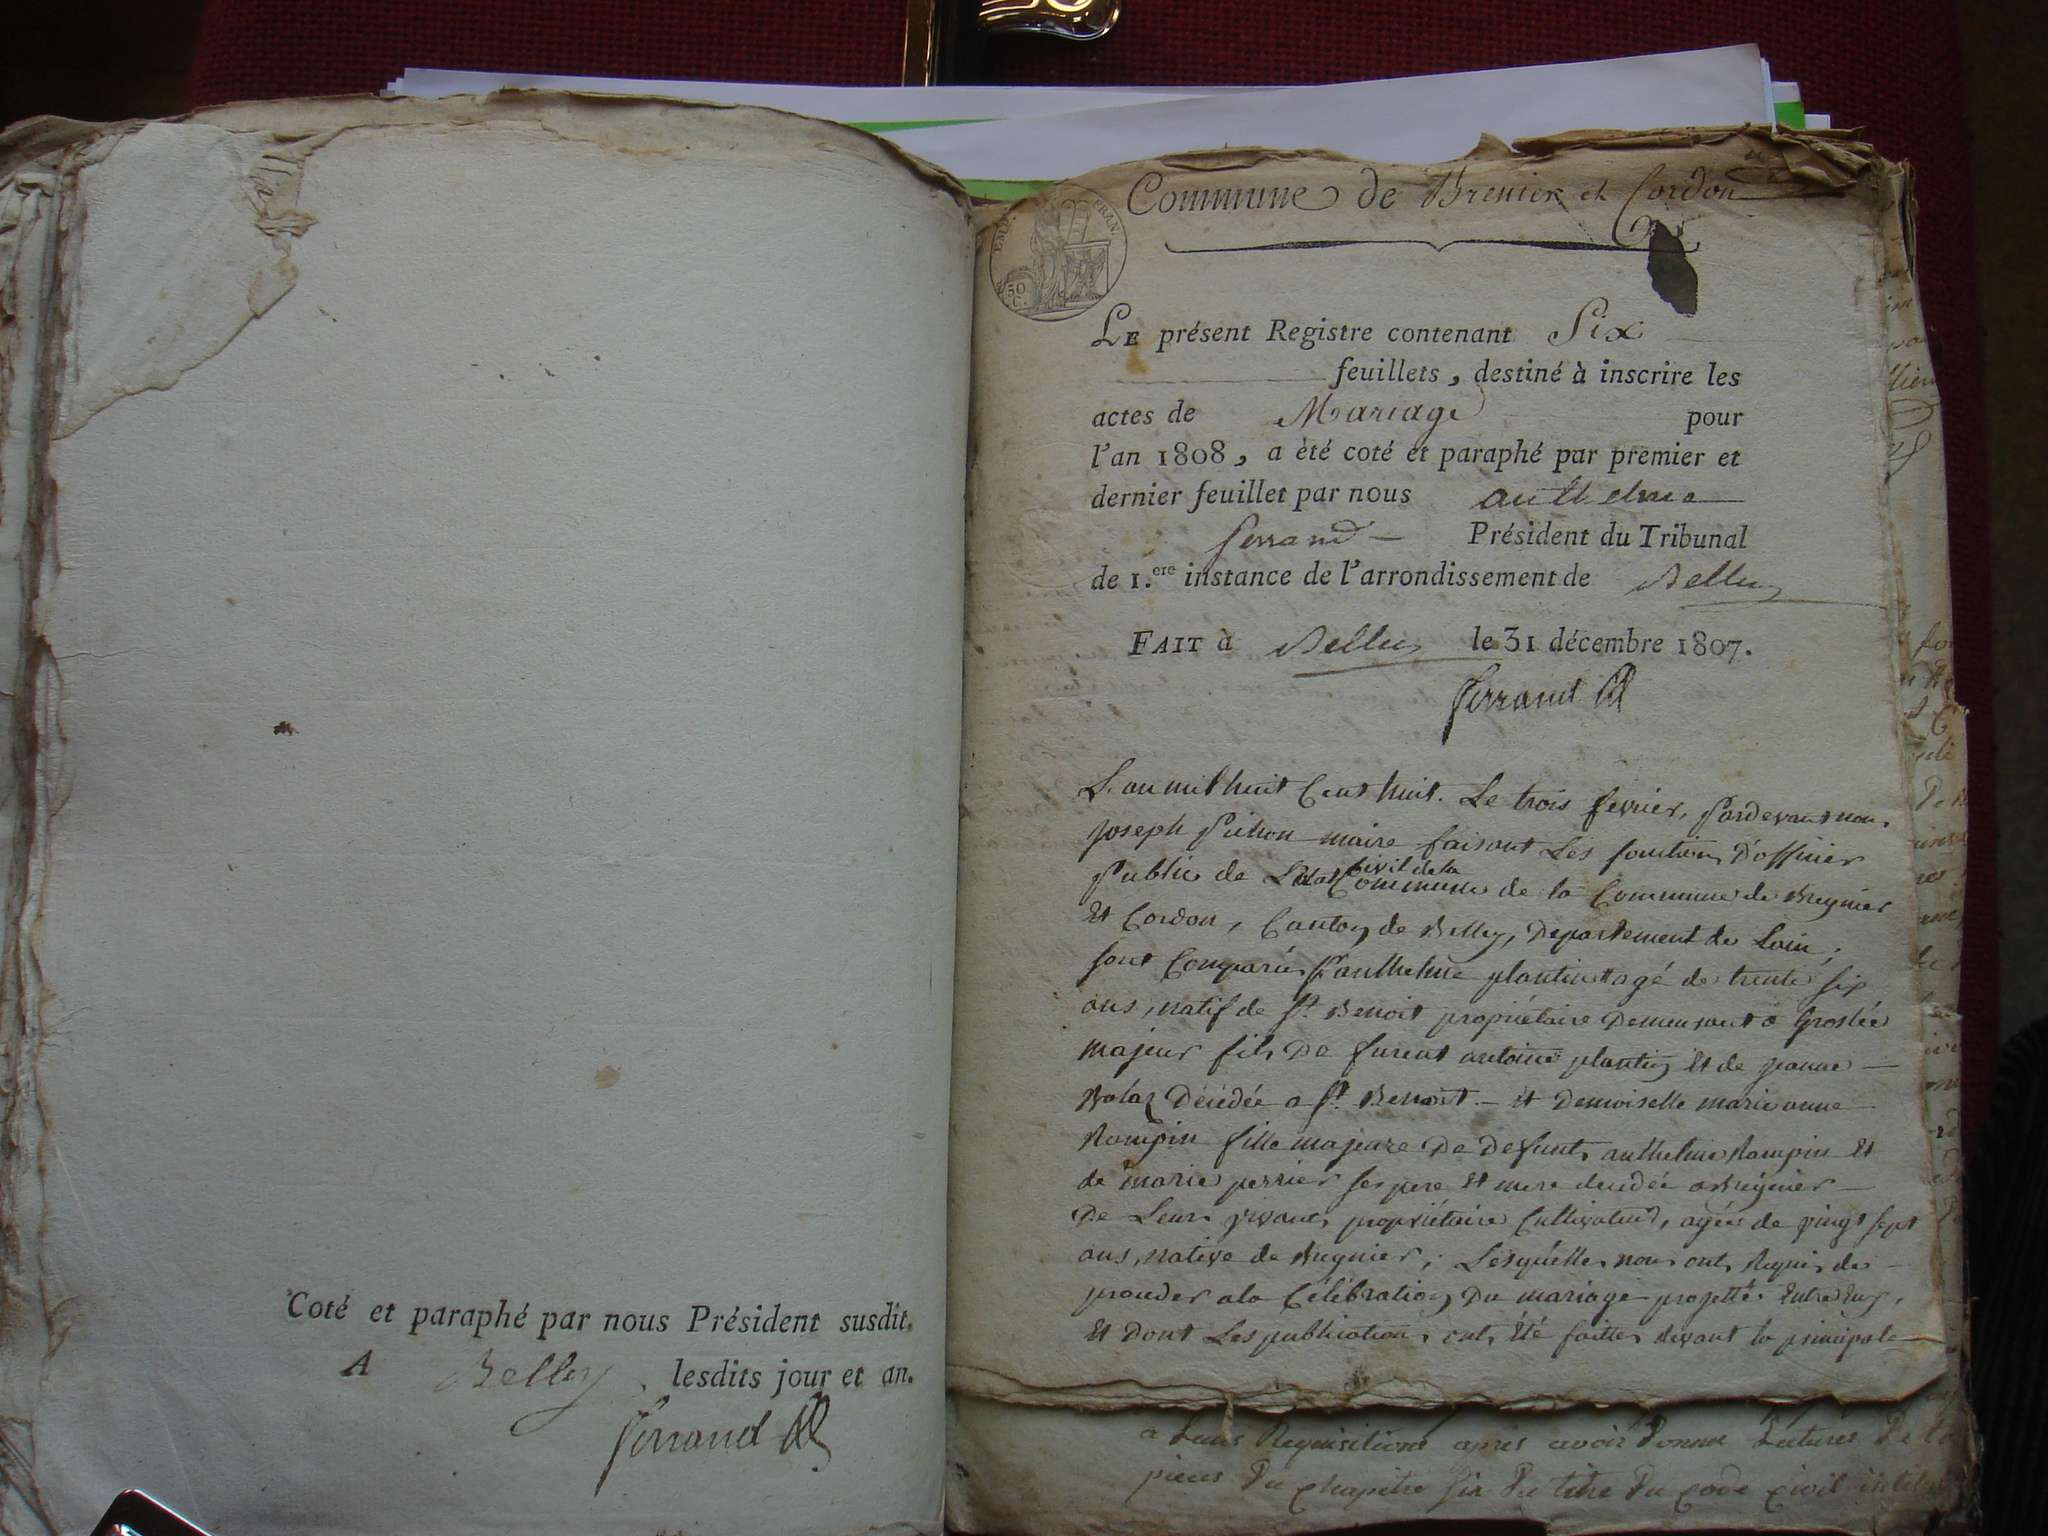 Coté et paraphé par nous Président susdit.
A Belley lesdits jour et an.
Ferrand
Commune de Brenier et Cordon
EMP. FRAN.
50 C.
LE présent Registre contenant Six
feuillets, destiné à inscrire les
actes de Mariage pour
l'an 1808, a été coté et paraphé par premier et
dernier feuillet par nous anthelme
ferrand Président du Tribunal
de 1.ere instance de l'arrondissement de Belley
FAIT à Belley le 31 décembre 1807.
Ferrand
L'an mil huit Cent huit. Le trois fevrier, Pardevant nous
joseph Pichon maire faisant Les fonctions D'officier
Public de L'etat civil de la Commune de la Commune de Bregnier
Et Cordon, Canton de Belley, Departement de Lain,
sont Comparus anthelme plantin agé de trente six
ans, natif de St Benoit propriétaire Demeurant a Groslée
majeur fils De furent antoine plantin Et de jeanne
Décédée a St Benoit - Et Demoiselle marie anne
Rampin fille majeure De Defunts anthelme Rampin Et
de marie perrier ses pere Et mere decedée a Bregnier
De Leurs vivants propriétaire Cultivateurs, agée de vingt sept
ans, native de Bregnier, Lesquelles nous ont Requis de
proceder a la Célébration Du mariage projetté Entre Eux,
Et Dont Les publications ont Été faittes devant la principale
a Leurs Requisitions apres avoir Donné Lectures De la
pieces Du chapitre six Du titre Du code civil intitul